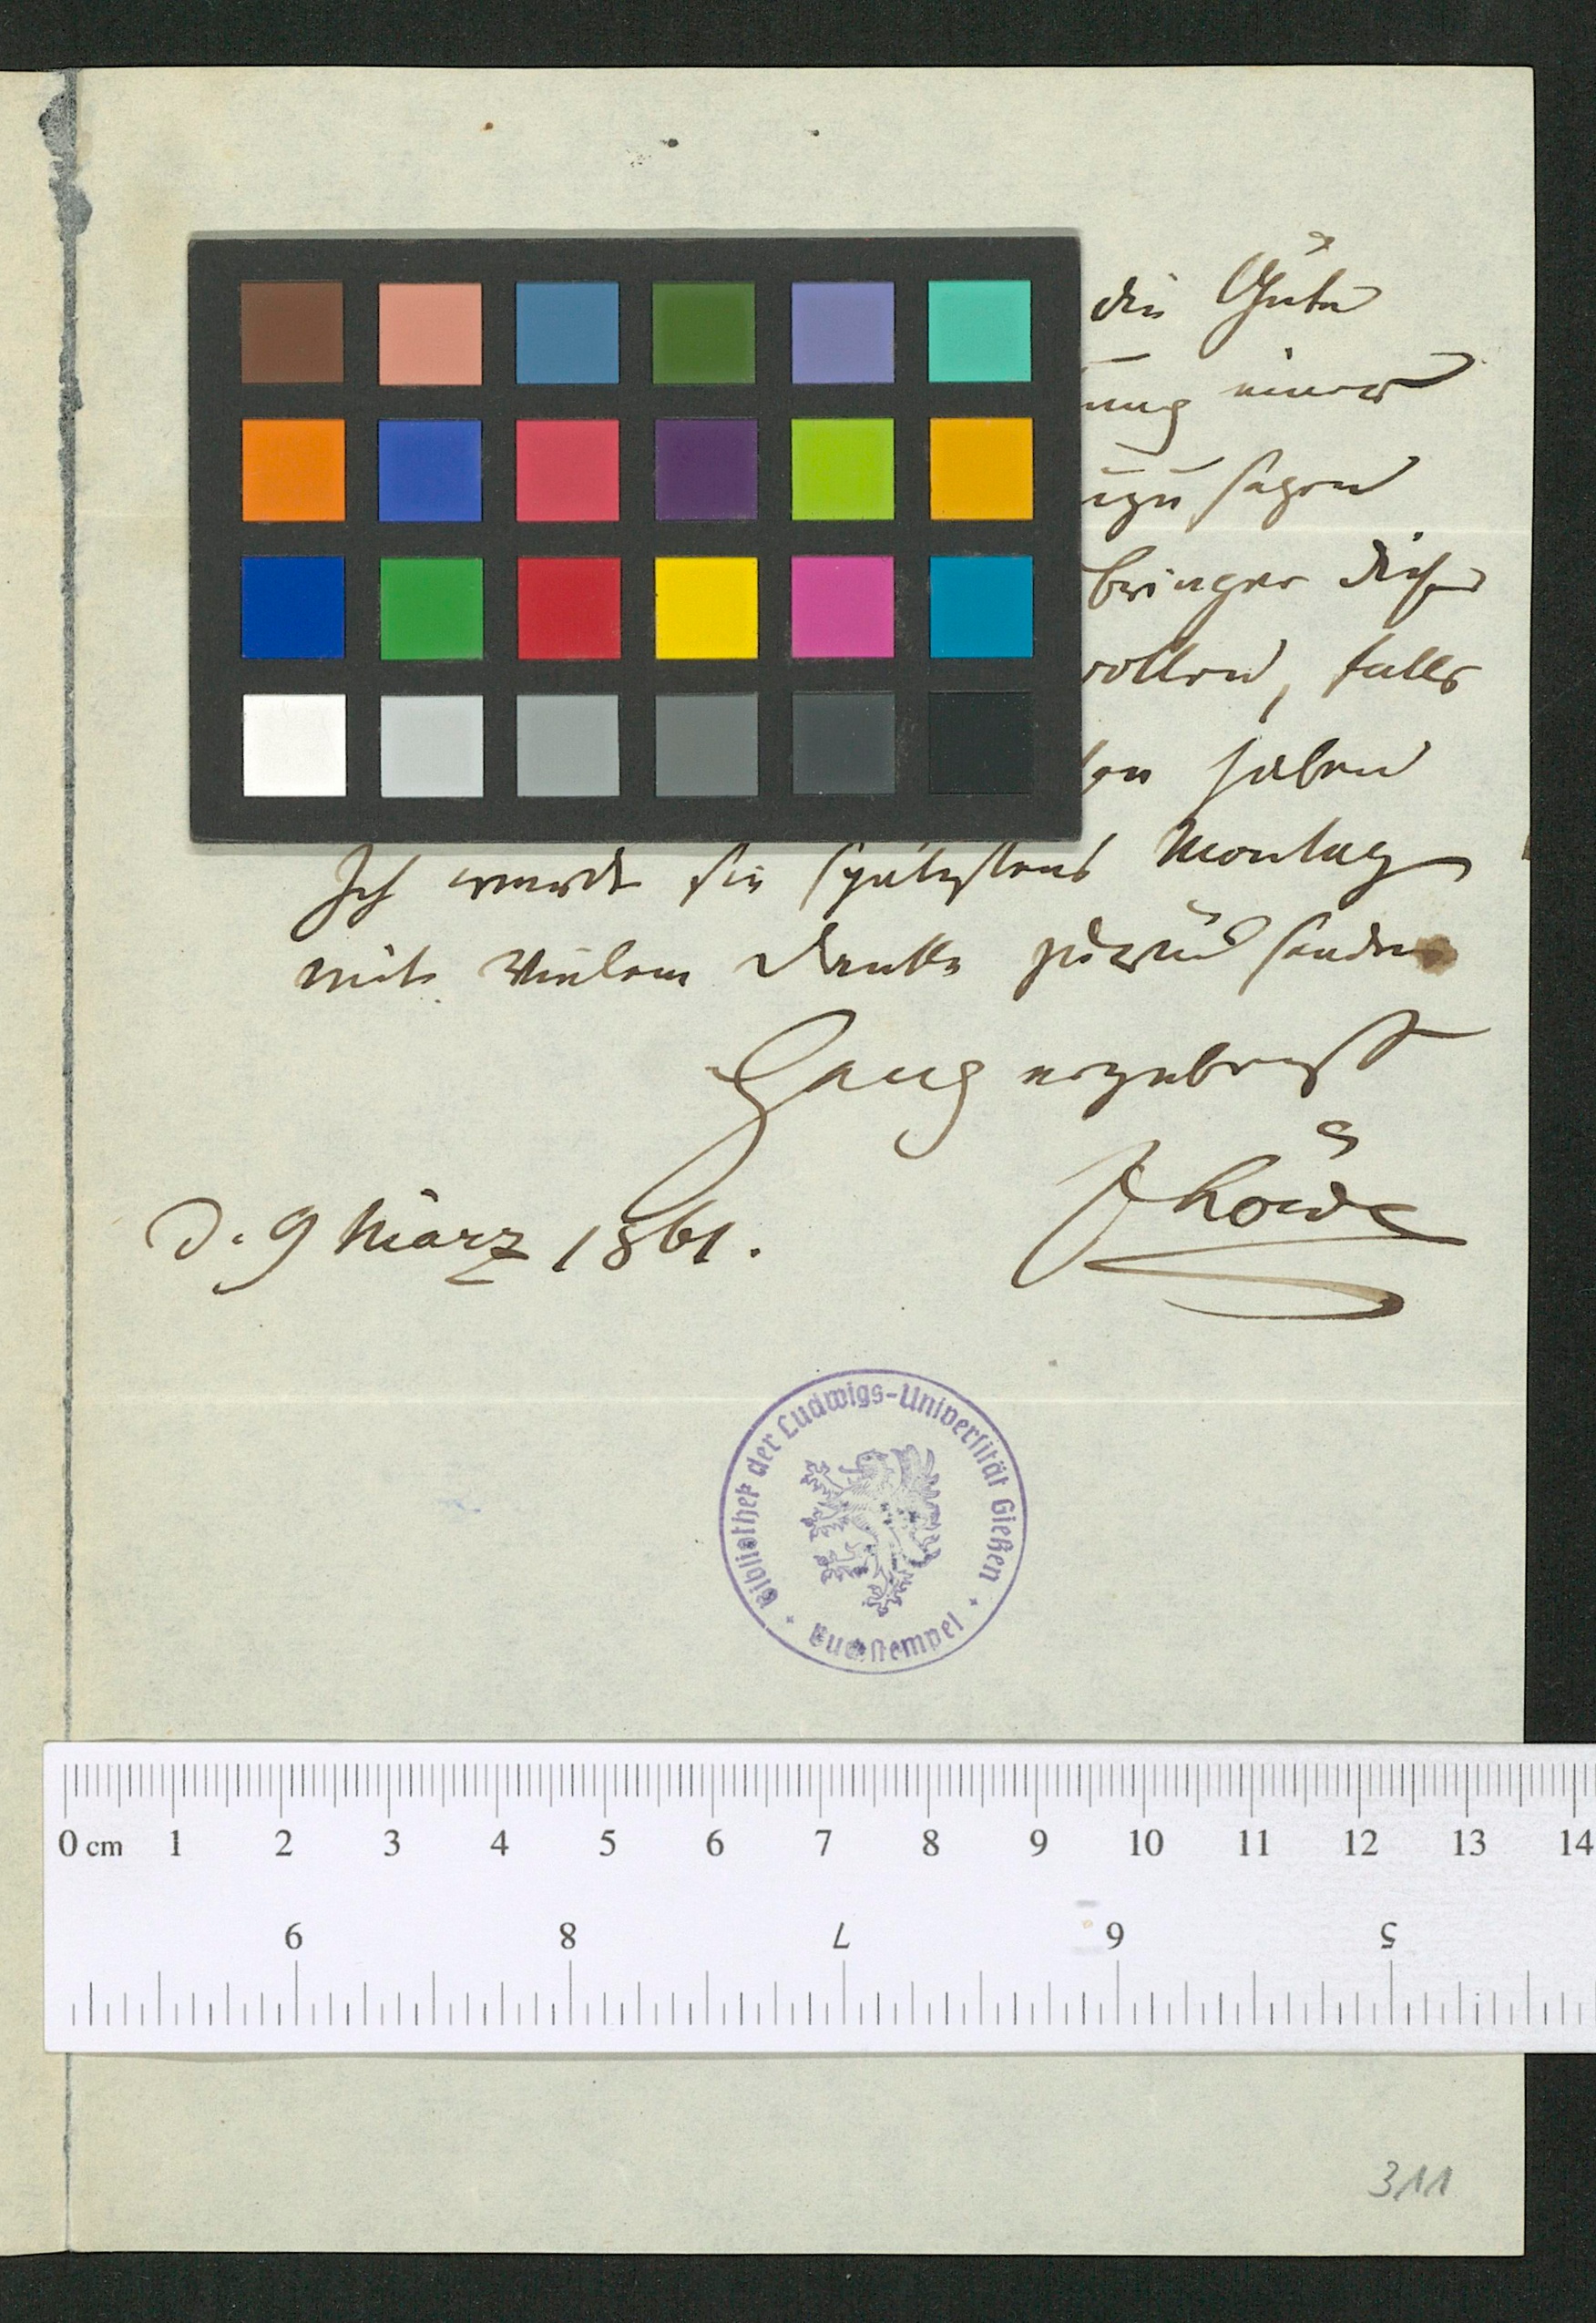 die Güte
ung einer
sagen
bringer dieses
wollen, falls
haben
Ich werde sie spätestens Montag
mit vielem Danke zurück senden
Ganz ergebenst
Löwe
D. 9 März 1861.
Bibliothek der Ludwigs-Universität Gießen
Buchstempel
0 cm 1 2 3 4 5 6 7 8 9 10 11 12 13 14
9 8 7 6 5
311